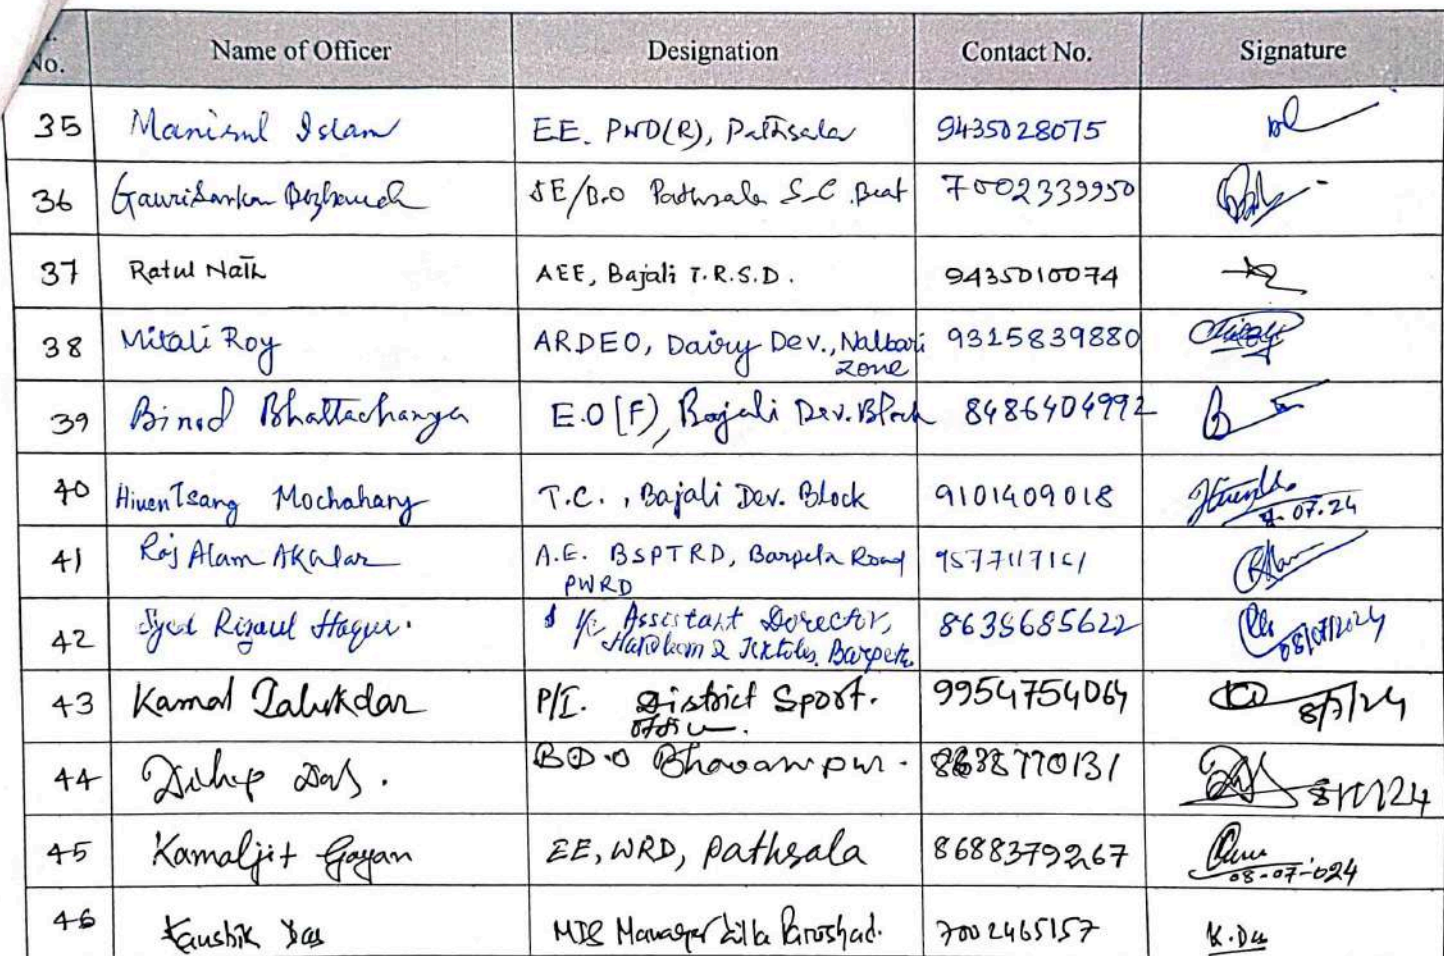 No. Name of Officer Designation Contact No. Signature
35 Manirul Islam EE. PWD(R), Pathsala 9435028075
36 Gaurisankar JE/B.O Pathsala S-C Beat 7002339950
37 Ratul Nath AEE, Bajali T.R.S.D. 9435010074
38 Mitali Roy ARDEO, Dairy Dev., Nalbari 9315839880
Zone
39 Binod Bhattacharya E.O [F), Bajali Dev. Block 8486404992
40 Hiuen Tsang Mochahary T.C., Bajali Dev. Block 9101409018
07.24
41 Roj Alam A.E. BSPTRD, Barpeta Road
PWRD
42 Syed Rizaul Haque. I/c Assistant Director, 8638685622 08/07/2024
Handloom & Textiles, Barpeta
43 Kamal Talukdar P/I. District Sport. 9954754064 8/7/24
44 Dilip Das. B.D.O Bhavanipur. 8638770131 8/7/24
45 Kamaljit Gogan EE, WRD, Pathsala 8688379267
08-07-024
46 Kaushik Das MIS Manager Zilla Paroshad. 7002465157 K. Das